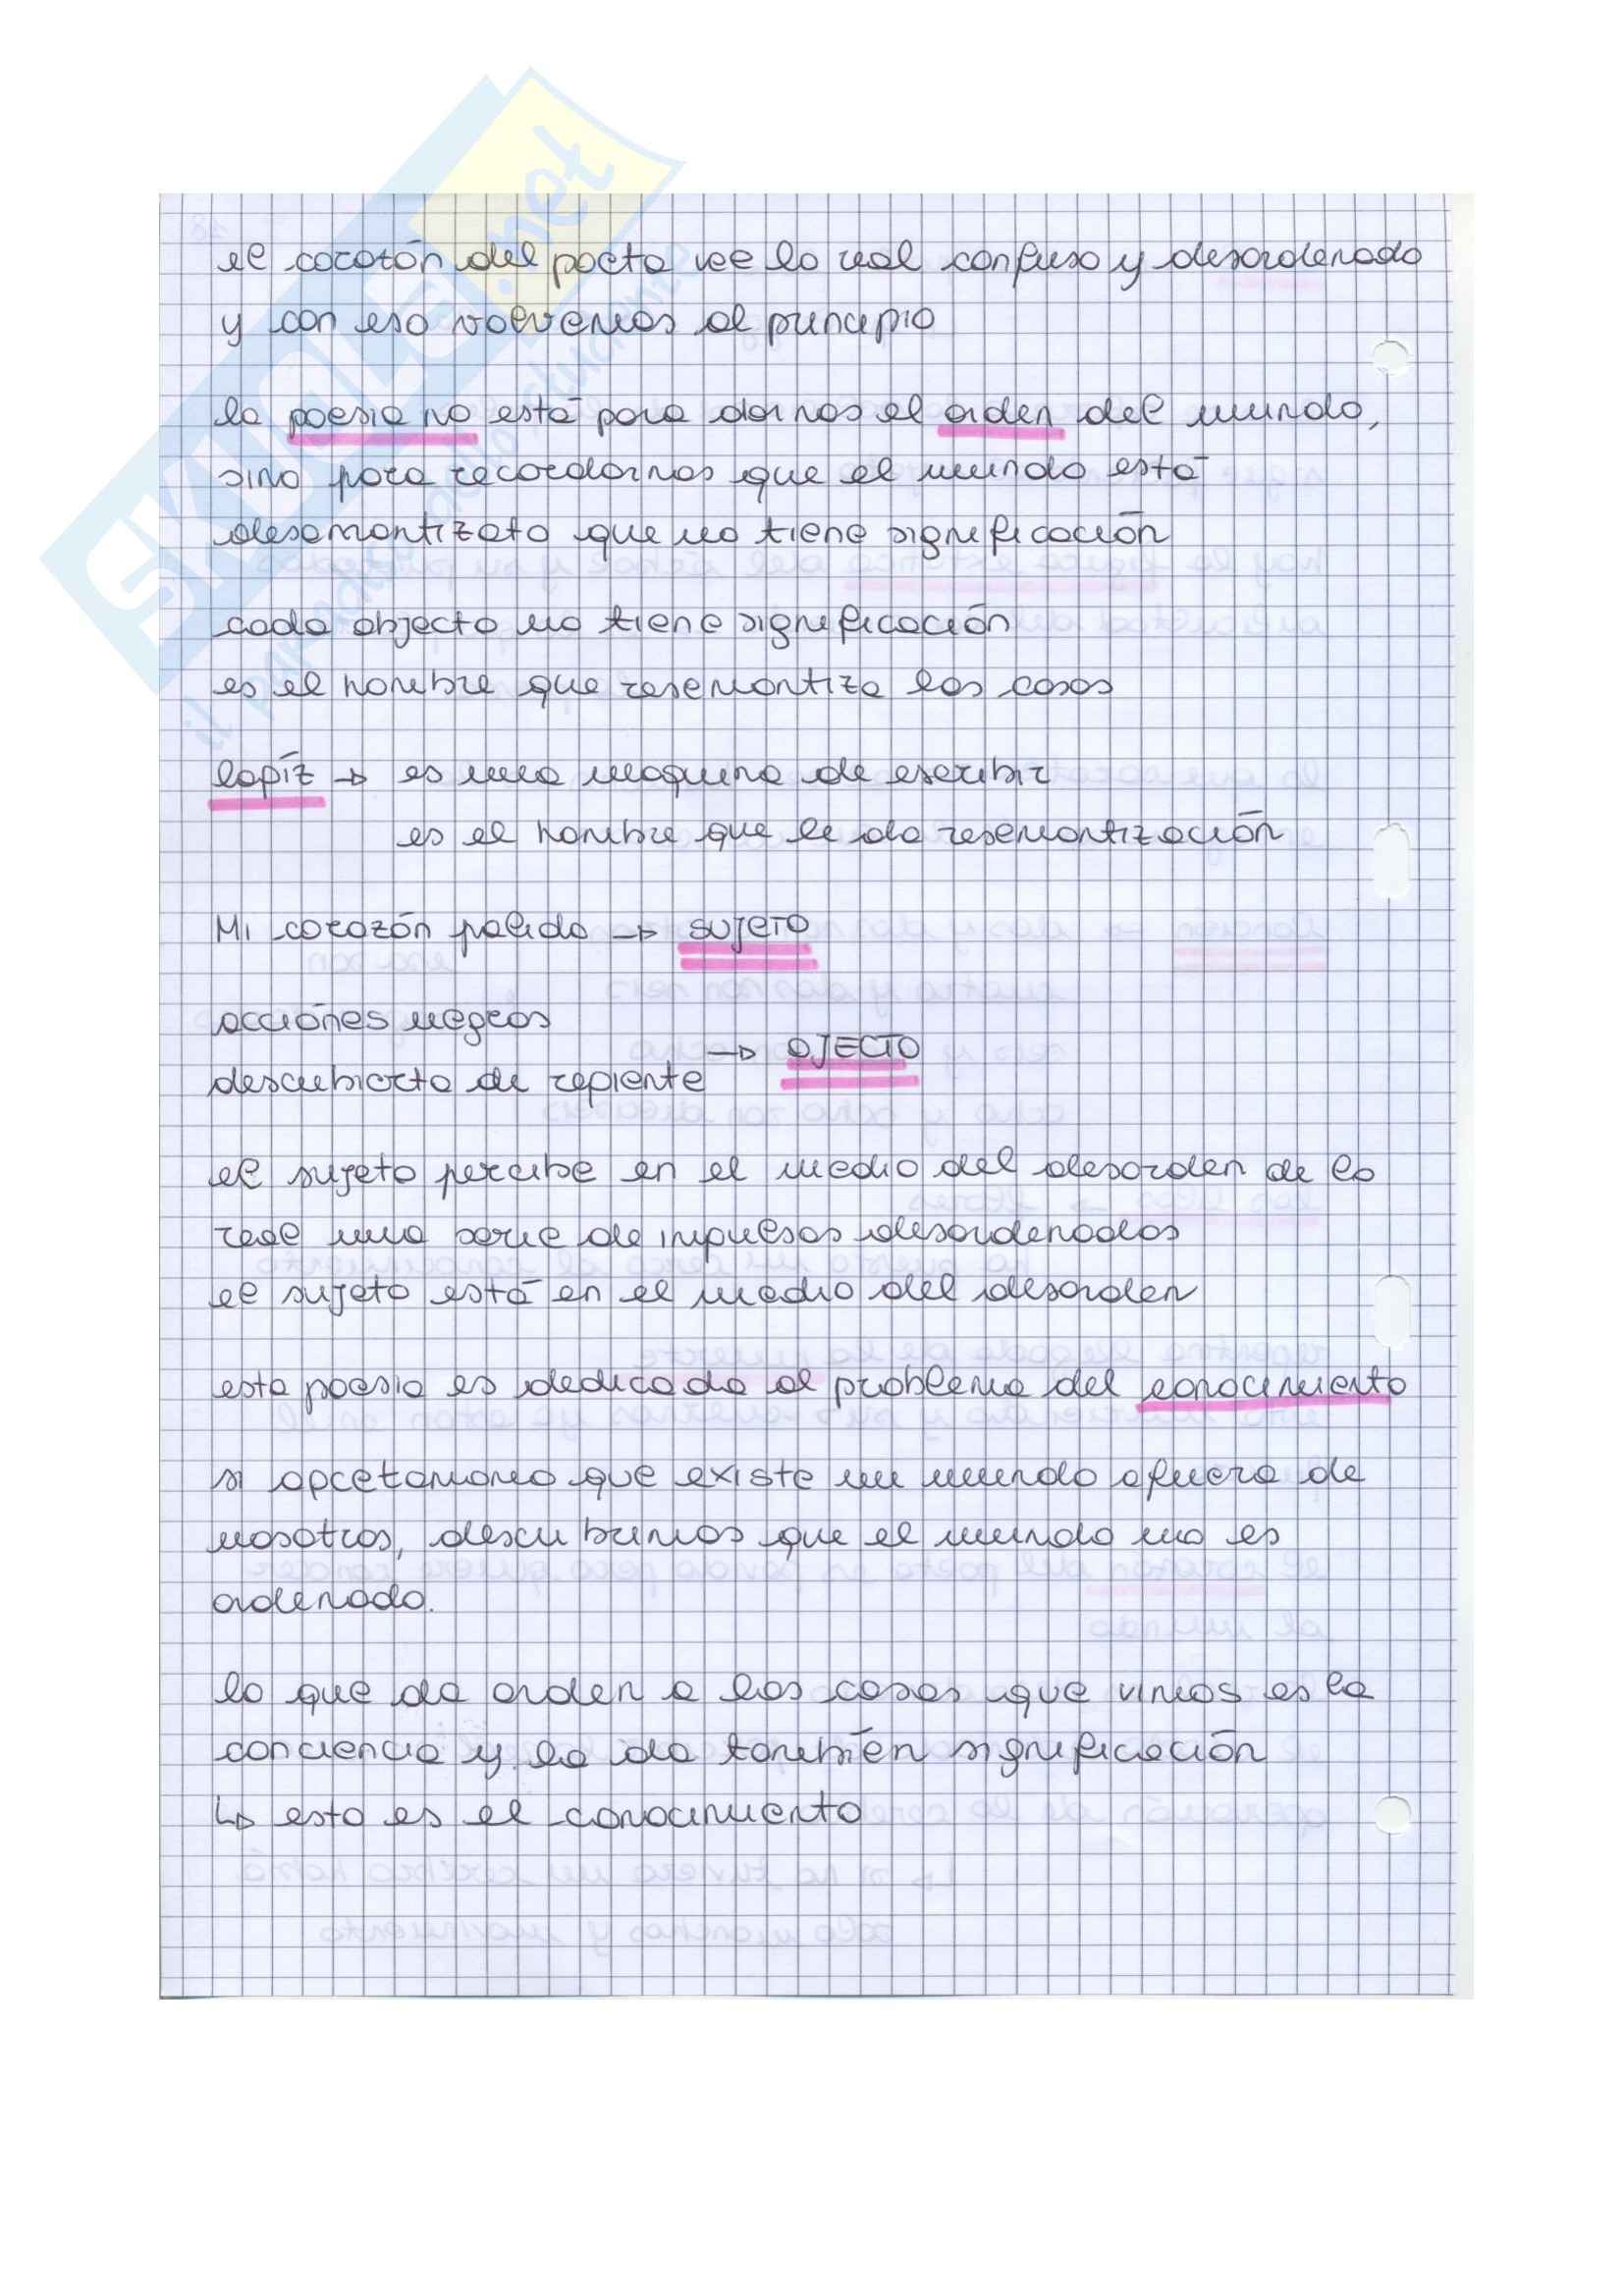 el corotón del poeta vee lo real confuso y desordenado
y con eso volvemos al principio
la poesia no está para darnos el orden del mundo,
sino para recordarnos que el mundo está
desemantizato que no tiene significación
cada objecto no tiene significación
es el hombre que resemantiza las cosas
lapíz → es una maquina de escribir
es el hombre que le da resemantización
Mi corozón palido → SUJETO
acciónes negras
descubierta de repiente → OJECTO
el sujeto percibe en el medio del desorden de lo
real una serie de impulsos desordenados
el sujeto está en el medio del desorden
esta poesia es dedicada al problema del conocimiento
si apcetamono que existe un mundo afuera de
nosotros, descubrimos que el mundo no es
ordenado.
lo que da orden a las cosas que vimos es la
conciencia y la da también significación
↳ esto es el conocimiento
SKUOLA.net